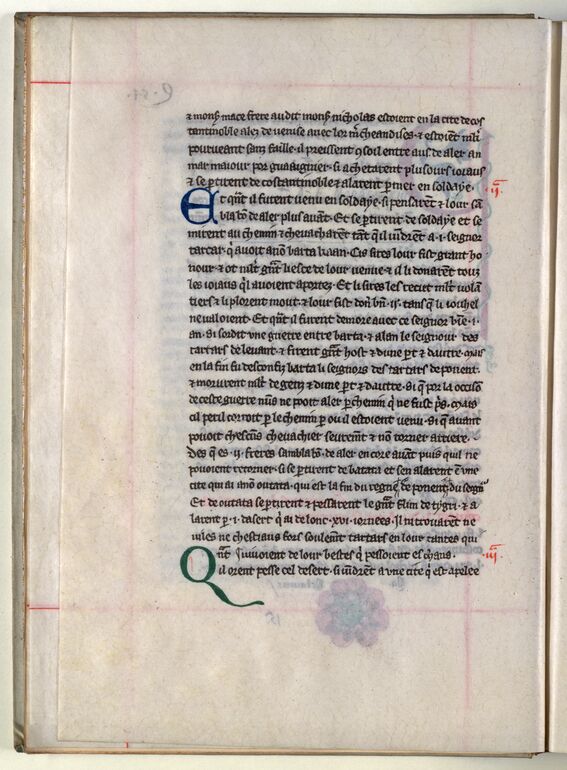 ⁊ monſ mace frere audit monſ nicholas estoient en la cite de cos
tantinoble alez de venise auec lor mcheandises · ⁊ estoient mlt
pourueant sanz faille · il preissent ꝯsoil entre aus de aler an
mar maiour por guaaignier · si achetarent plusours ioiaus
⁊ se ꝑtirent de costantinoble ⁊ alarent ꝑ mer en soldaye ·
· ii ·
Et quãt il furent venu en soldaye · si pensarẽt ⁊ lour sã
bla bõ de aler plus auãt · Et se ꝑtirent de soldaye et se
mirent au chemin ⁊ cheuacharẽt tãt q̃ il uindrẽt a · i · seignor
tartar · q̃ auoit anõ barta kaan · Cis sires lour fist grant ho
nour · ⁊ ot mlt grãt liesce de lour venue · ⁊ il li donarẽt touz
les ioiaus q̃l auoient aportez · Et li sires les recut mlt volã
tiers ⁊ li plorent mout · ⁊ lour fist doñ bñ · ii · tans q̃ li ioihel
ne valoient · Et quãt il furent demore auec ce seignor bñe · i ·
an · si sordit vne guerre entre barta · ⁊ alan le seignour des
tartars de leuant · ⁊ firent grãt host ⁊ dune ꝑt ⁊ dautre · mais
en la fin fu desconfiz barta li seignors des tartars de ponent ·
⁊ morurent mlt de genz ⁊ dune ꝑt ⁊ dautre · si q̃ por la occisõ
de ceste guerre nuns ne poit aler ꝑ chemin q̃ ne fust pͥs · mais
cil peril corroit ꝑ le chemin ꝑ ou il estoient venu · si q̃ auant
pouoit chescũs cheuachier seuremt ⁊ nõ torner arriere ·
Des q̃ es · ii · freres sambla bõ · de aler encore auãt puis quil ne
pouoient retorner · si se ꝑtirent de barata et sen alarent ẽ vne
cite qui ai anõ outata · qui est la fin du regne de ponent du seignͬ
Et de outata se ꝑtirent ⁊ pessarent le grãt flim de tygri · ⁊ a
larent ꝑ · i · dasert q̃ ai de lonc · xvi · iornees · Jl ni trouarẽt ne
uiles ne chestiaus fors soulemt tartars en lour tantes qui
uiuoient de lour bestes q̃ pessoient es chans ·
· iii ·
Quãt il orent passe cel desert · si uindrẽt a vne cite q̃ est apelee